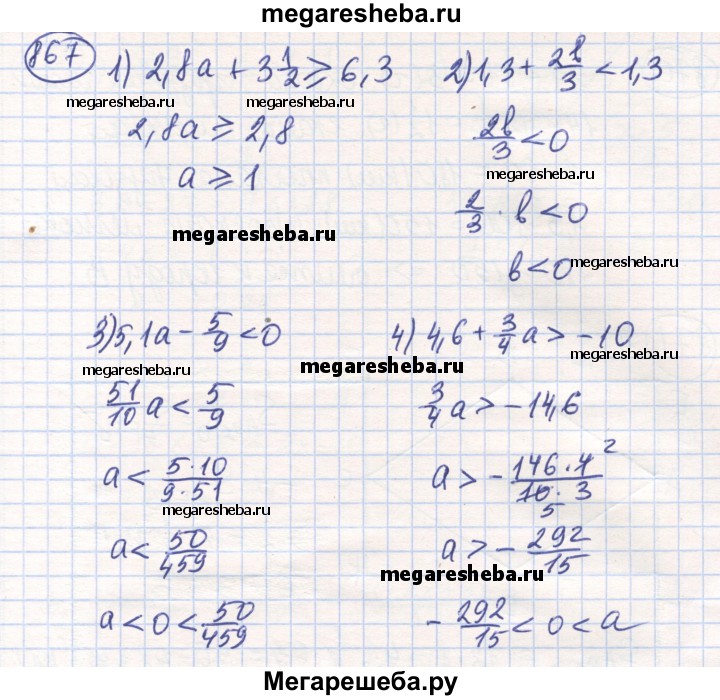 megaresheba.ru
867
1) 2,8a + 3 1/2 ⩾ 6,3
megaresheba.ru
2,8a ⩾ 2,8
a ⩾ 1
megaresheba.ru
2) 1,3 + 2b/3 < 1,3
megaresheba.ru
2b/3 < 0
megaresheba.ru
2/3 · b < 0
b < 0
megaresheba.ru
3) 5,1a - 5/9 < 0
megaresheba.ru
51/10 a < 5/9
a < 5·10/9·51
megaresheba.ru
a < 50/459
a < 0 < 50/459
4) 4,6 + 3/4 a > -10
megaresheba.ru
megaresheba.ru
3/4 a > -14,6
a > - 146·4 2/10·3 5
megaresheba.ru
a > - 292/15
megaresheba.ru
- 292/15 < 0 < a
Мегарешеба.ру